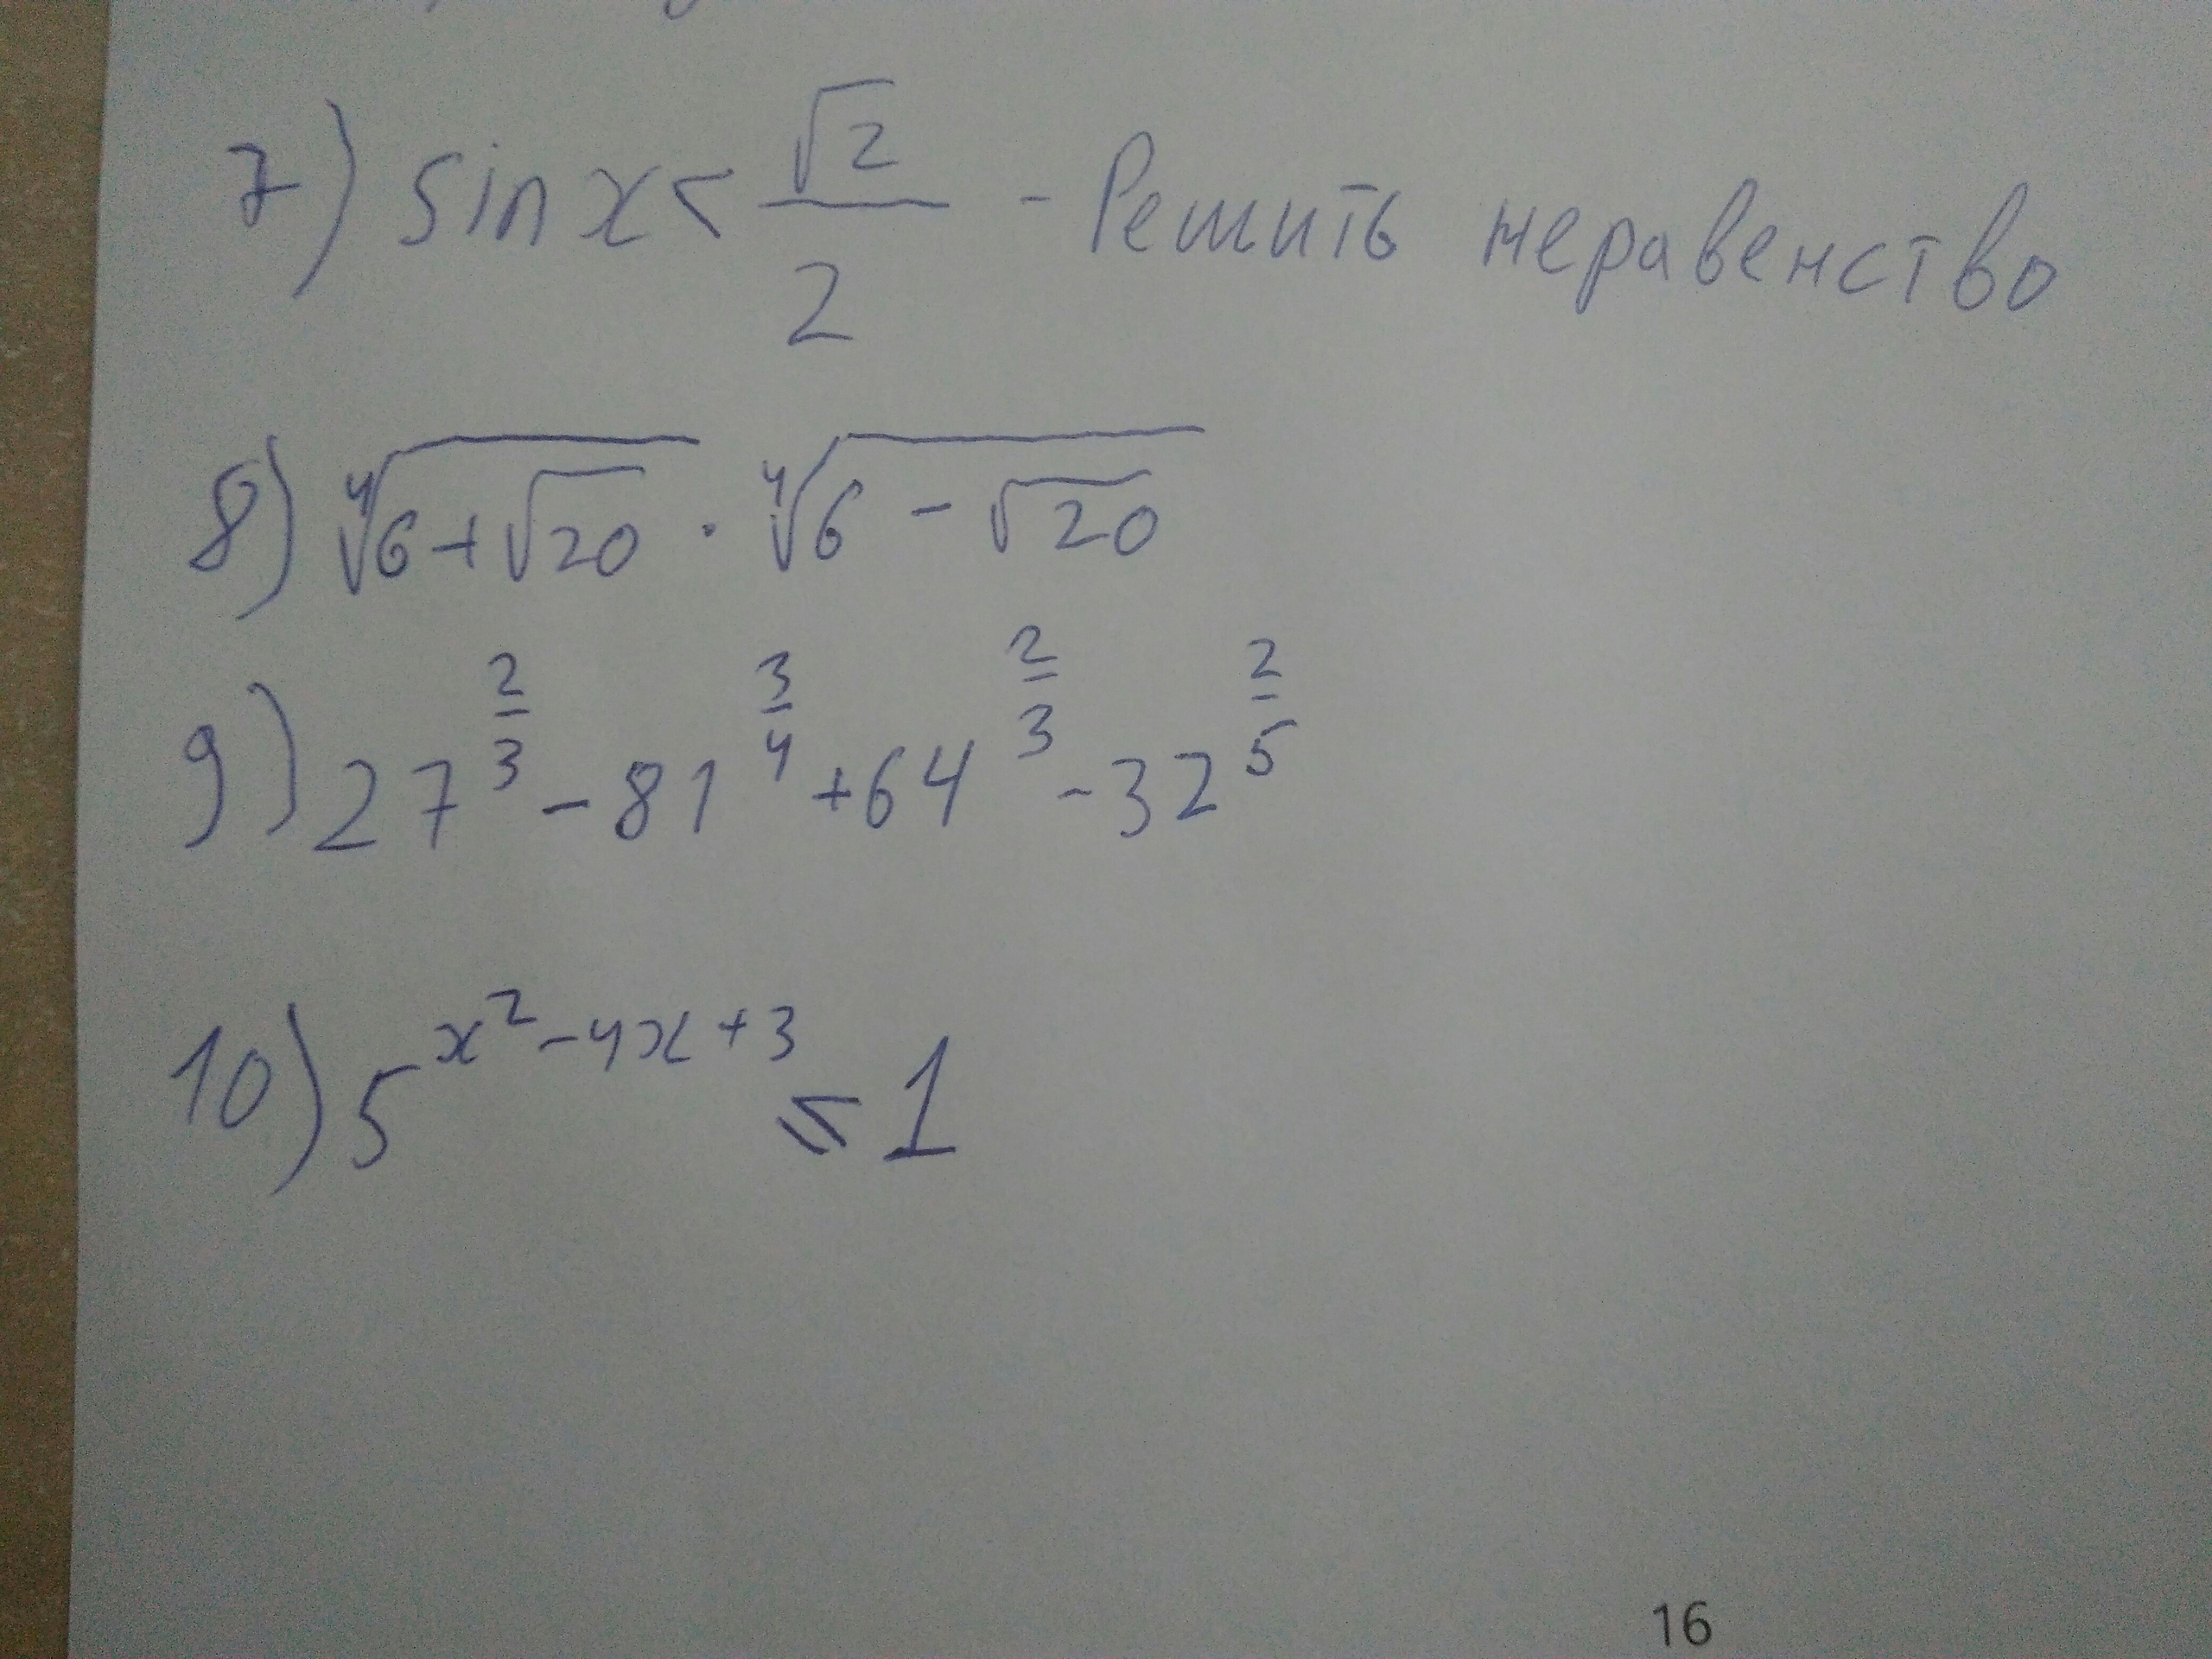 7) sin x < √2/2 - Решить неравенство
8) ⁴√(6+√20) · ⁴√(6 - √20)
9) 27^(2/3) - 81^(3/4) + 64^(2/3) - 32^(2/5)
10) 5^(x² - 4x + 3) ≤ 1
16